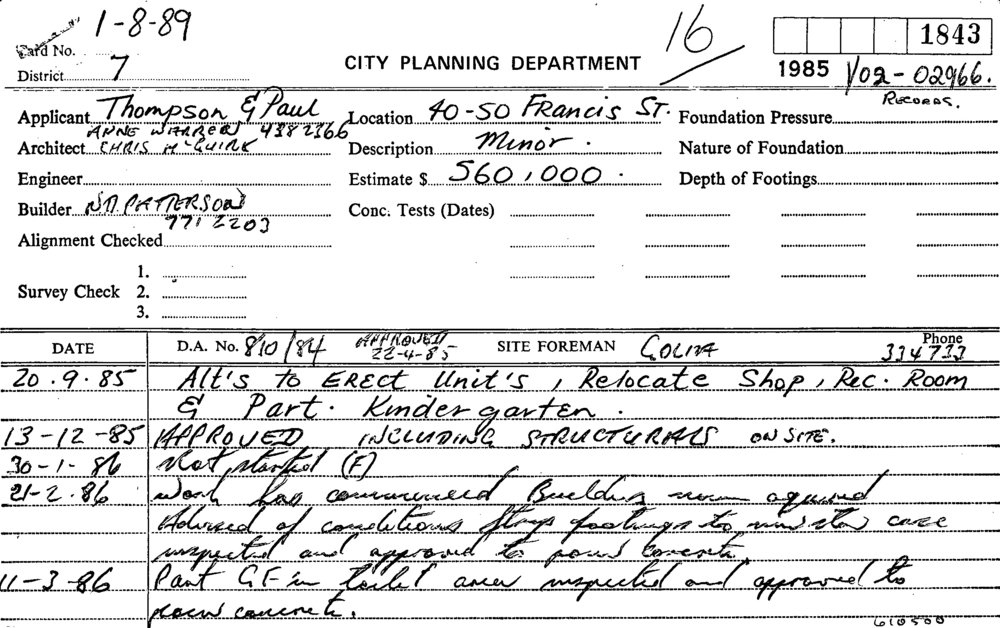 1-8-89
Card No.
16
1843
District 7
CITY PLANNING DEPARTMENT
1985 V02-02966.
RECORDS.
Applicant Thompson & Paul
Location 40-50 Francis St.
Foundation Pressure
ANNE WARREN 4382366
Architect CHRIS McGUIRK
Description Minor.
Nature of Foundation
Engineer
Estimate $ 560,000.
Depth of Footings
Builder PATTERSON
771 2203
Conc. Tests (Dates)
Alignment Checked
1.
Survey Check 2.
3.
DATE
D.A. No. 810/84 APPROVED 22-4-85
SITE FOREMAN
Phone 334733
20.9.85 Alt's to Erect Unit's, Relocate Shop, Rec. Room
& Part. Kindergarten.
13-12-85 APPROVED INCLUDING STRUCTURALS ON SITE.
30-1-86 Not started (F)
21-2.86 Work has commenced Building
Advised of conditions footings to case
inspected and approved to pour concrete
11-3-86 Part G.F. in toilet area inspected and approved to
pour concrete.
610500